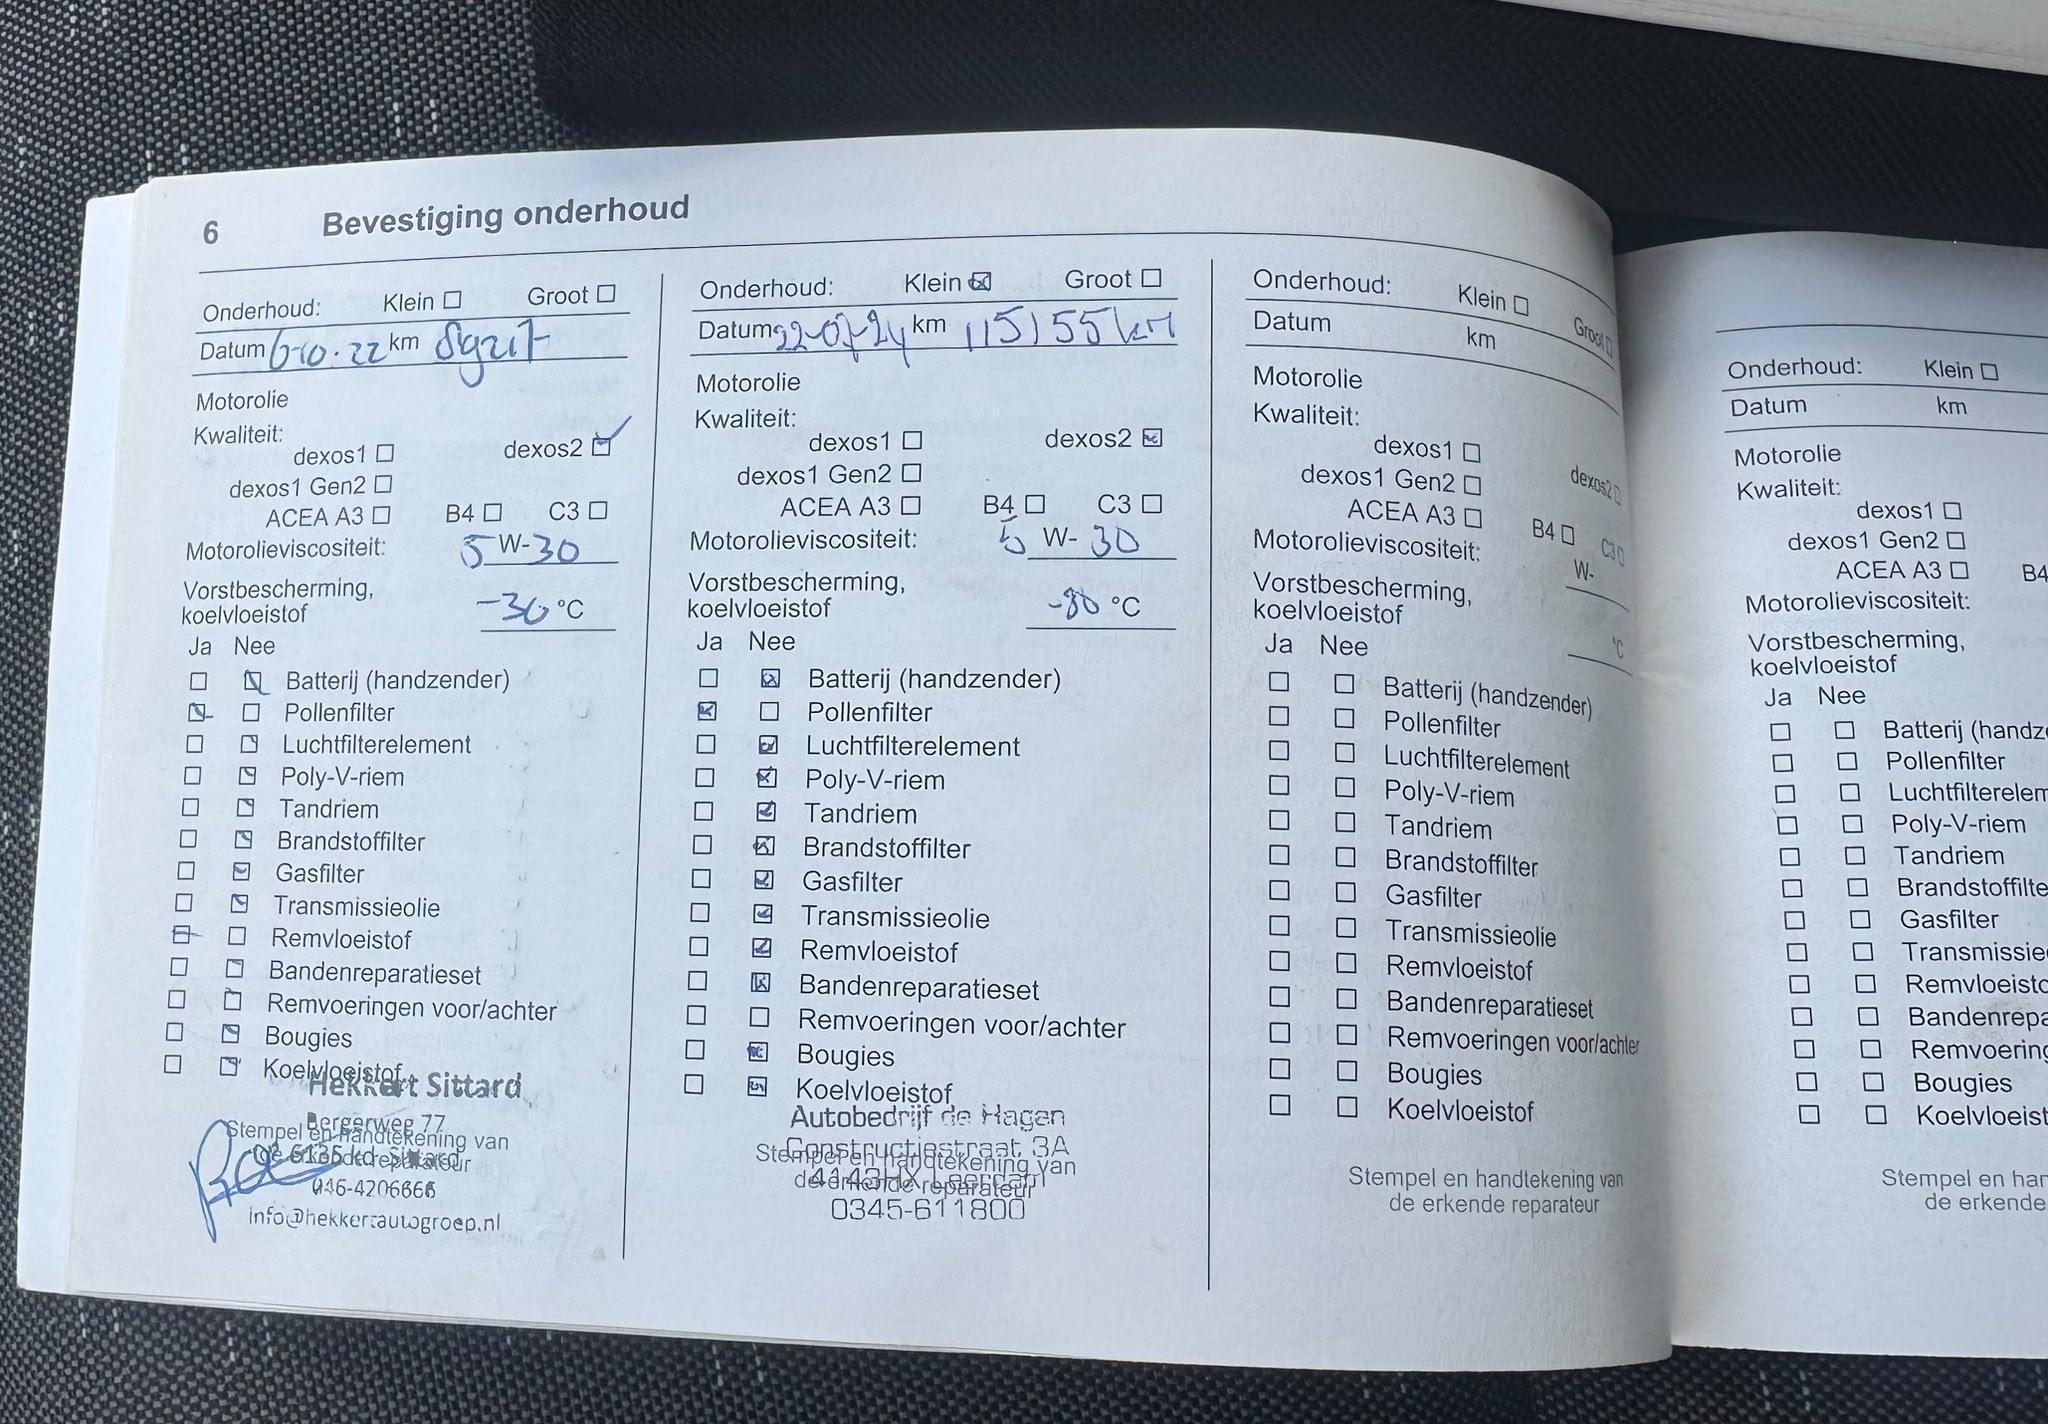 6 Bevestiging onderhoud
Onderhoud: Klein Groot
Datum 6-10-22 km
Motorolie
Kwaliteit:
dexos1 dexos2
dexos1 Gen2
ACEA A3 B4 C3
Motorolieviscositeit: 5 W-30
Vorstbescherming,
koelvloeistof -30 °C
Ja Nee
Batterij (handzender)
Pollenfilter
Luchtfilterelement
Poly-V-riem
Tandriem
Brandstoffilter
Gasfilter
Transmissieolie
Remvloeistof
Bandenreparatieset
Remvoeringen voor/achter
Bougies
Koelvloeistof
Hekkert Sittard
Bergerweg 77
Stempel en handtekening van
de erkende reparateur
6135 kd Sittard
046-4206666
info@hekkertautogroep.nl
Onderhoud: Klein Groot
Datum 22-07-24 km 115155 km
Motorolie
Kwaliteit:
dexos1 dexos2
dexos1 Gen2
ACEA A3 B4 C3
Motorolieviscositeit: 5 W- 30
Vorstbescherming,
koelvloeistof -30 °C
Ja Nee
Batterij (handzender)
Pollenfilter
Luchtfilterelement
Poly-V-riem
Tandriem
Brandstoffilter
Gasfilter
Transmissieolie
Remvloeistof
Bandenreparatieset
Remvoeringen voor/achter
Bougies
Koelvloeistof
Autobedrijf de Hagen
Constructiestraat 3A
Stempel en handtekening van
4143HX Leerdam
de erkende reparateur
0345-611800
Onderhoud: Klein Groot
Datum km
Motorolie
Kwaliteit:
dexos1 dexos2
dexos1 Gen2
ACEA A3 B4 C3
Motorolieviscositeit: W-
Vorstbescherming,
koelvloeistof °C
Ja Nee
Batterij (handzender)
Pollenfilter
Luchtfilterelement
Poly-V-riem
Tandriem
Brandstoffilter
Gasfilter
Transmissieolie
Remvloeistof
Bandenreparatieset
Remvoeringen voor/achter
Bougies
Koelvloeistof
Stempel en handtekening van
de erkende reparateur
Onderhoud: Klein
Datum km
Motorolie
Kwaliteit:
dexos1
dexos1 Gen2
ACEA A3 B4
Motorolieviscositeit:
Vorstbescherming,
koelvloeistof
Ja Nee
Batterij (handz
Pollenfilter
Luchtfilterelem
Poly-V-riem
Tandriem
Brandstoffilte
Gasfilter
Transmissie
Remvloeisto
Bandenrepa
Remvoering
Bougies
Koelvloeist
Stempel en han
de erkende